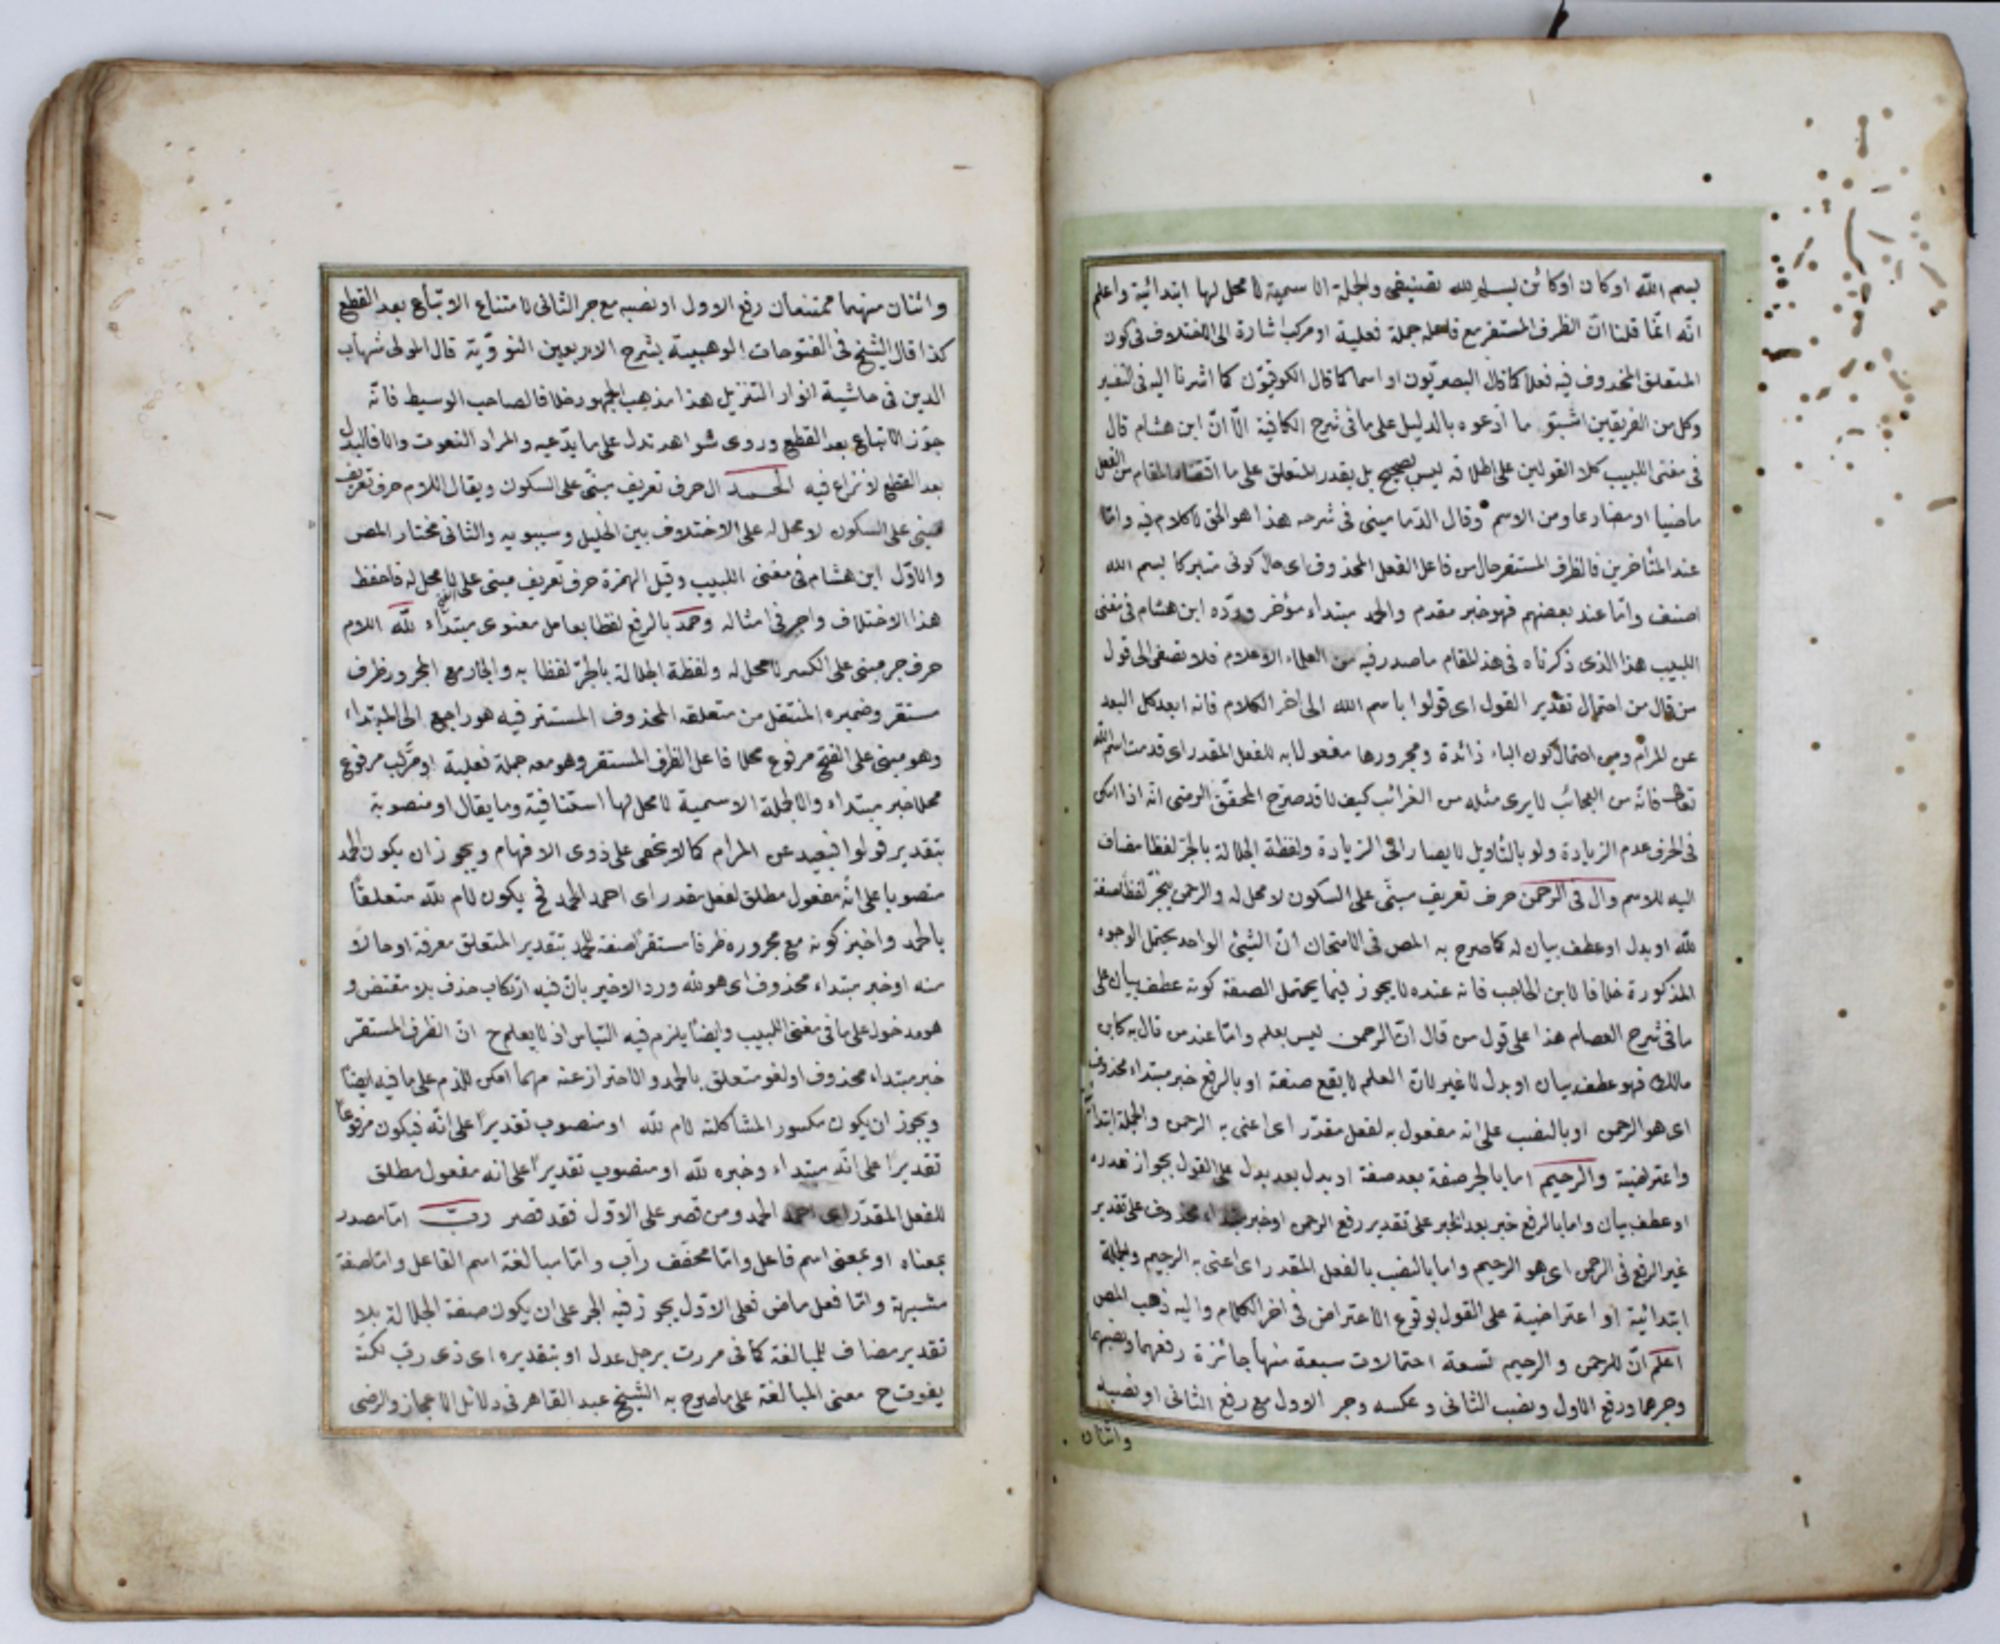 بسم الله او كان او كائن بسم الله تصنيفى والجملة الاسمية لا محل لها ابتدائية واعلم
انه انّما قلنا انّ الظرف المستقر مع فاعله جملة فعلية او مركب اشارة الى الاختلاف فى كون
المتعلق المحذوف فيه فعلا كما قال البصريّون او اسما كما قال الكوفيّون كما اشرنا اليه فى التفسير
وكل من الفريقين اثبتو ما ادعوه بالدليل على ما فى شرح الكافية الّا انّ ابن هشام قال
فى مغنى اللبيب كلا القولين على اطلاقه ليس بصحيح بل يقدر المتعلق على ما اقتضاه المقام من الفعل
ماضيا او مضارعا ومن الاسم وقال الدّمامينى فى شرحه هذا هو الحق لا كلام فيه وامّا
عند المتأخرين فالظرف المستقر حال من فاعل الفعل المحذوف اى حال كونى متبركا بسم الله
اصنف وامّا عند بعضهم فهو خبر مقدم والحمد مبتداء مؤخر وردّه ابن هشام فى مغنى
اللبيب هذا الذى ذكرناه فى هذ المقام ما صدر فيه من العلماء الاعلام فلا تصغى الى قول
من قال من احتمال تقدير القول اى قولوا باسم الله الى اخر الكلام فانه ابعد كل البعد
عن المرام ومن احتمال كون الباء زائدة ومجرورها مفعولا به للفعل المقدر اى قدمت اسم الله
تعالى فانّه من العجائب لا يرى مثله من الغرائب كيف لا قد صرّح المحقّق الرضى انه اذا امكن
فى الحرف عدم الزيادة ولو بالتأويل لا يصار الى الزيادة ولفظة الجلالة بالجرّ لفظا مضاف
اليه للاسم وال فى الرحمن حرف تعريف مبنّى على السكون لا محل له والرحمن بجرّ لفظا صفة
لله او بدل او عطف بيان له كما صرح به المص فى الامتحان انّ الشيئ الواحد يحتمل الوجوه
المذكورة خلافا لابن الحاجب فانه عنده لا يجوز فيما يحتمل الصفة كونه عطف بيان على
ما فى شرح العصام هذا على قول من قال انّ الرحمن ليس بعلم وامّا عند من قال به كابن
مالك فهو عطف بيان او بدل لا غير لانّ العلم لا يقع صفة او بالرفع خبر مبتداء محذوف
اى هو الرحمن او بالنصب على انه مفعول به لفعل مقدّر اى اعنى به الرحمن والجملة ابتدائية
واعتراضية والرحيم اما بالجر صفة بعد صفة او بدل بعد بدل على القول بجواز تعدده
او عطف بيان واما بالرفع خبر بعد الخبر على تقدير رفع الرحمن او خبر مبتداء محذوف على تقدير
غير الرفع فى الرحمن اى هو الرحيم واما بالنصب بالفعل المقدر اى اعنى به الرحيم والجملة
ابتدائية او اعتراضية على القول بوقوع الاعتراض فى اخر الكلام واليه ذهب المص
اعلم انّ للرحمن والرحيم تسعة احتمالات سبعة منها جائزة رفعهما ونصبهما
وجرهما ورفع الاول ونصب الثانى وعكسه وجر الاول مع رفع الثانى او نصبه
واثنان
واثنان منهما ممتنعان رفع الاول او نصبه مع جر الثانى لامتناع الاتباع بعد القطع
كذا قال الشيخ فى الفتوحات الوهبيية بشرح الاربعين النوويّة قال المولى شهاب
الدين فى حاشية انوار التنزيل هذا مذهب الجمهور خلافا لصاحب الوسيط فانّه
جوّز الاتباع بعد القطع وروى شواهد تدل على ما يدّعيه والمراد النعوت والا فالبدل
بعد القطع لا نزاع فيه الحمد ال حرف تعريف مبنّى على السكون ويقال اللام حرف تعريف
مبنى على السكون لا محل له على الاختلاف بين الخليل وسيبويه والثانى مختار المص
والاوّل ابن هشام فى مغنى اللبيب وقيل الهمزة حرف تعريف مبنى على الفتح لا محل له فاحفظ
هذا الاختلاف واجر فى امثاله وحمد بالرفع لفظا بعامل معنوى مبتداء لله اللام
حرف جر مبنى على الكسر لا محل له ولفظة الجلالة بالجرّ لفظا به والجار مع المجرور ظرف
مستقر وضميره المنتقل من متعلقه المحذوف المستتر فيه هو راجع الى المبتداء
وهو مبنى على الفتح مرفوع محلا فاعل الظرف المستقر وهو معه جملة فعلية او مركّب مرفوع
محلا خبر مبتداء والجملة الاسمية لا محل لها استنافية وما يقال او منصوبة
بتقدير قولوا فبعيد عن المرام كما لا يخفى على ذوى الافهام ويجوز ان يكون الحمد
منصوبا على انّه مفعول مطلق لفعل مقدر اى احمد الحمد فح يكون لام لله متعلقًا
بالحمد واختير كونه مع مجروره ظرفا مستقرا صفة للحمد بتقدير المتعلق معرفة او حالًا
منه او خبر مبتداء محذوف اى هو لله ورد الاخير بانّ فيه ارتكاب حذف بلا مقتض و
هو مدخول على ما فى مغنى اللبيب وايضا يلزم فيه التباس اذ لا يعلم ح انّ الظرف المستقرّ
خبر مبتداء محذوف او لغو متعلق بالحمد والاحتراز عنه مهما امكن للذم على ما فيه ايضًا
ويجوز ان يكون مكسور المشاكلته لام لله او منصوب تقديرا على انّه فيكون مرفوعًا
تقديرًا على انّه مبتداء وخبره لله او منصوب تقديرًا على انه مفعول مطلق
للفعل المقدّر اى احمد الحمد ومن قصر على الاوّل فقد قصر ربّ امّا مصدر
بمعناه او بمعنى اسم فاعل وامّا مخفّف رابّ وامّا مبالغة اسم الفاعل وامّا صفة
مشبهة وامّا فعل ماض فعلى الاوّل يجوز فيه الجر على ان يكون صفة الجلالة بلا
تقدير مضاف للمبالغة كما فى مررت برجل عدل او بتقديره اى ذى ربّ لكنّه
يفوت ح معنى المبالغة على ما صرح به الشيخ عبد القاهر فى دلائل الاعجاز والرضى